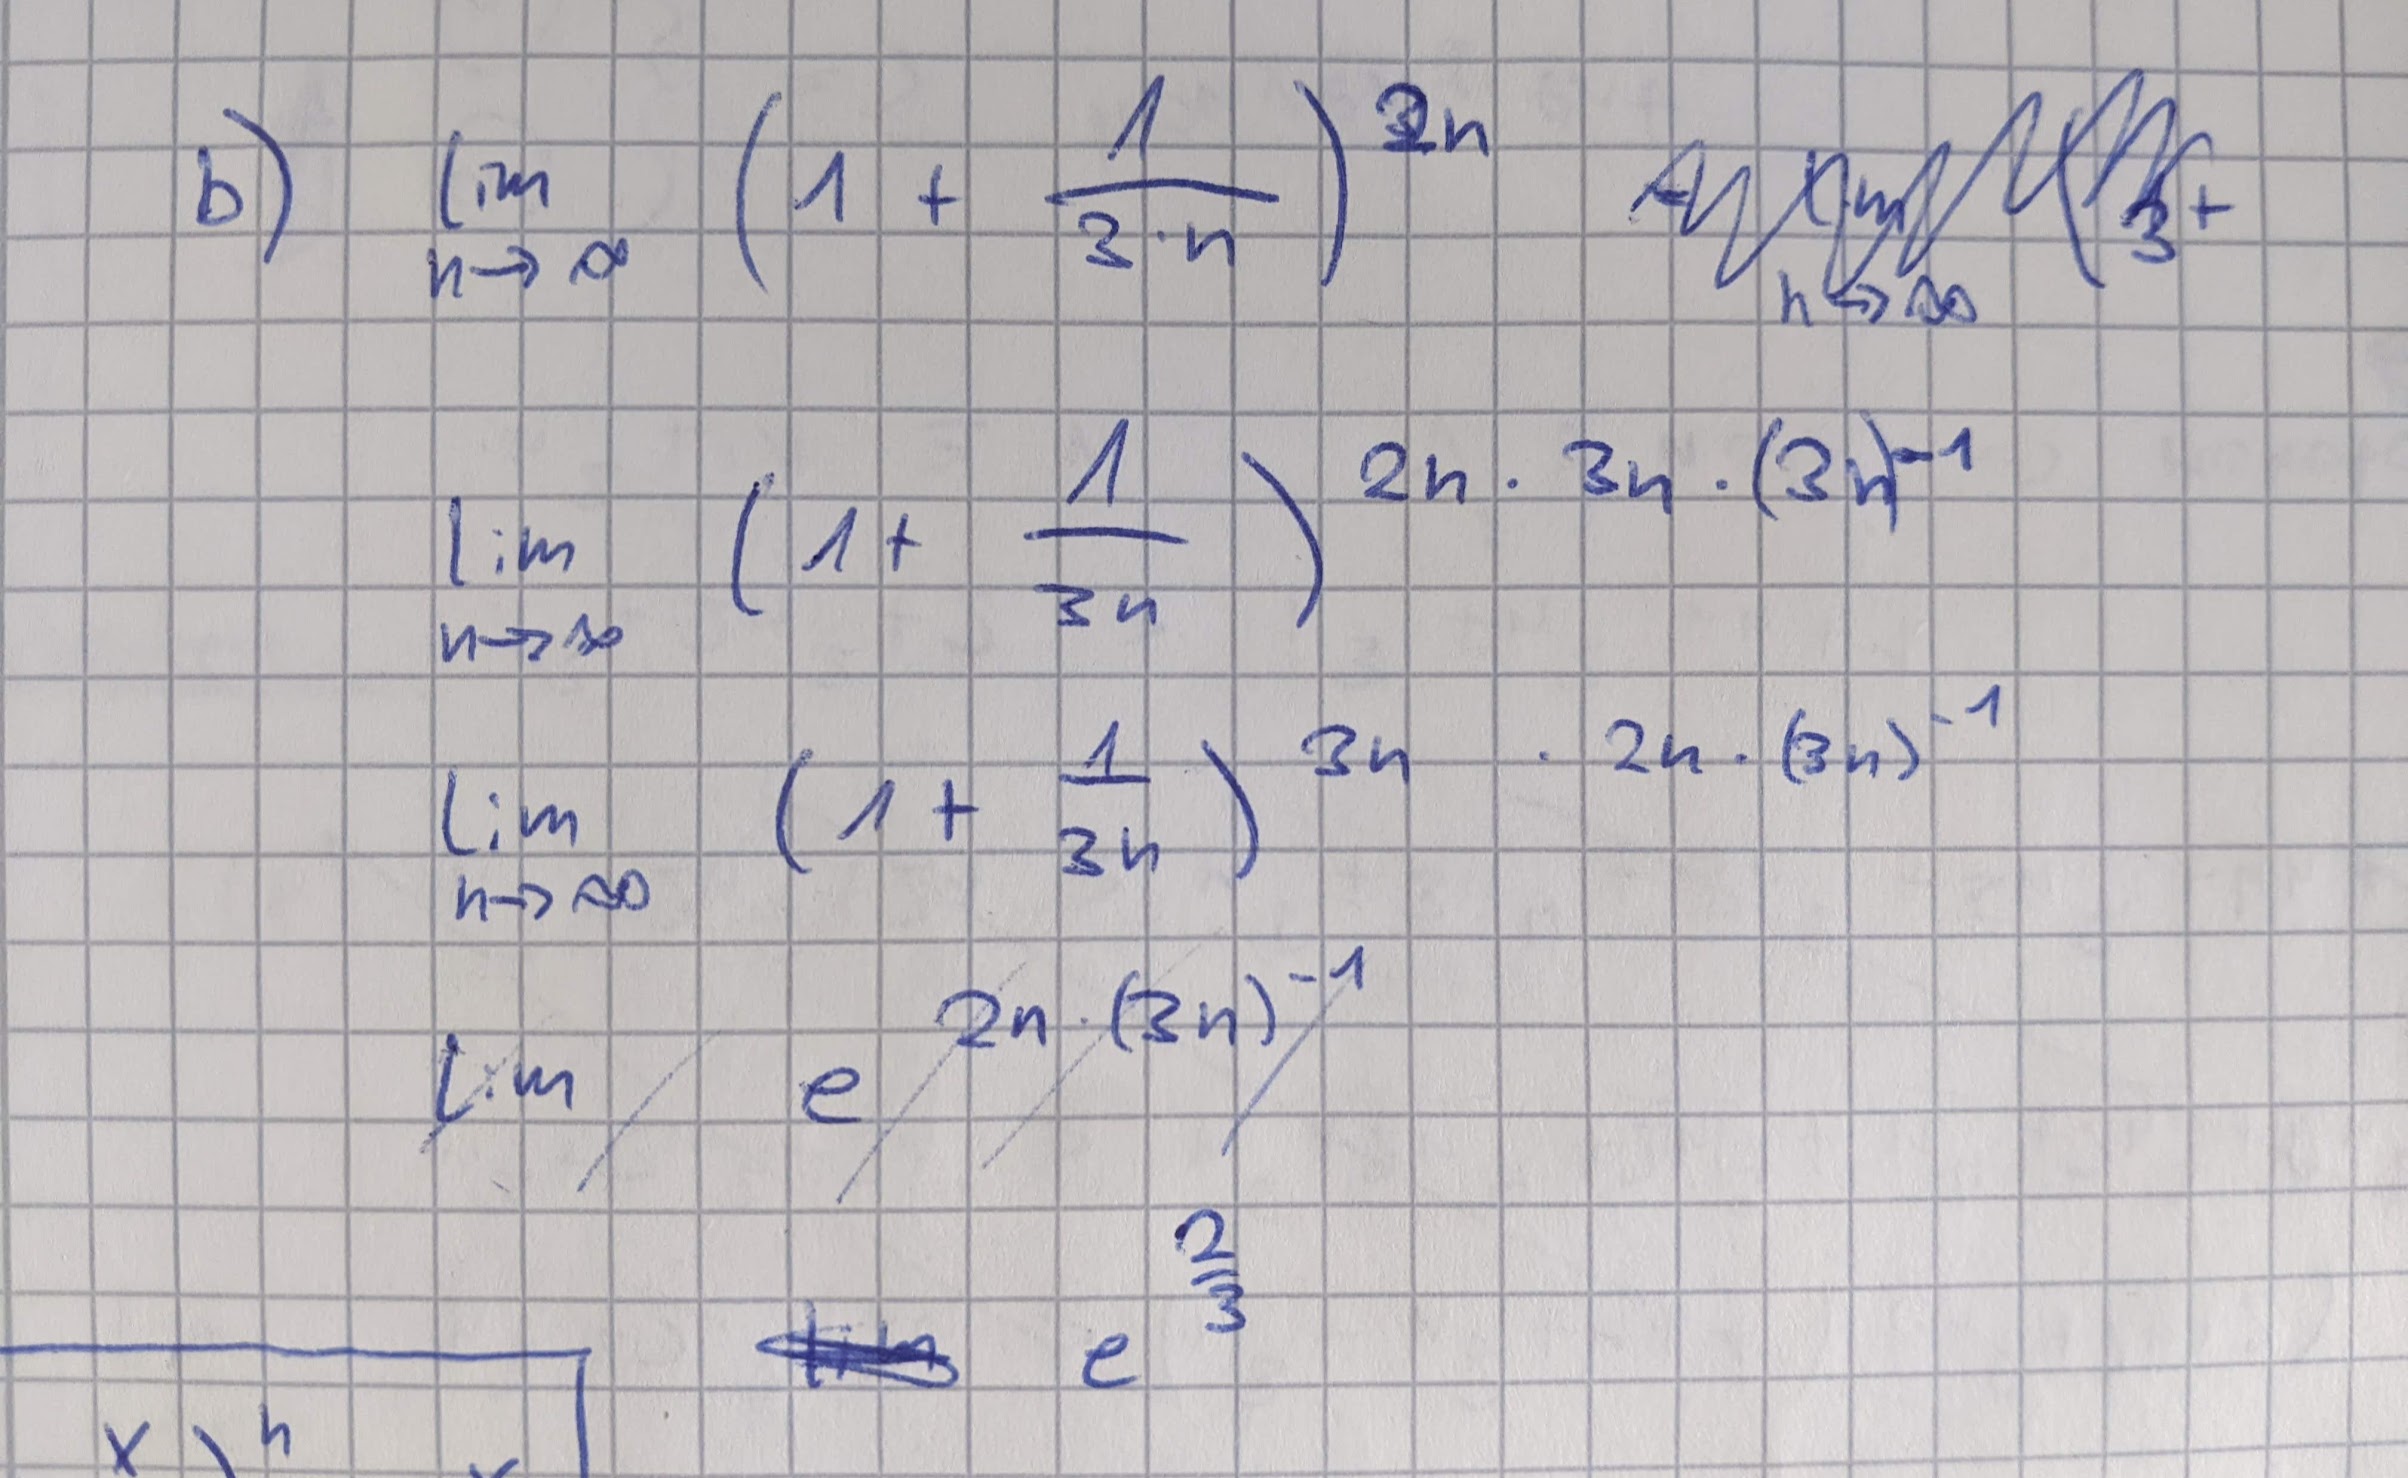 b) lim n→∞ (1 + 1/(3·n))^2n
lim n→∞ (1 + 1/3n)^2n · 3n · (3n)^-1
lim n→∞ (1 + 1/3n)^3n · 2n · (3n)^-1
lim e^2n · (3n)^-1
e^2/3
x)^n x